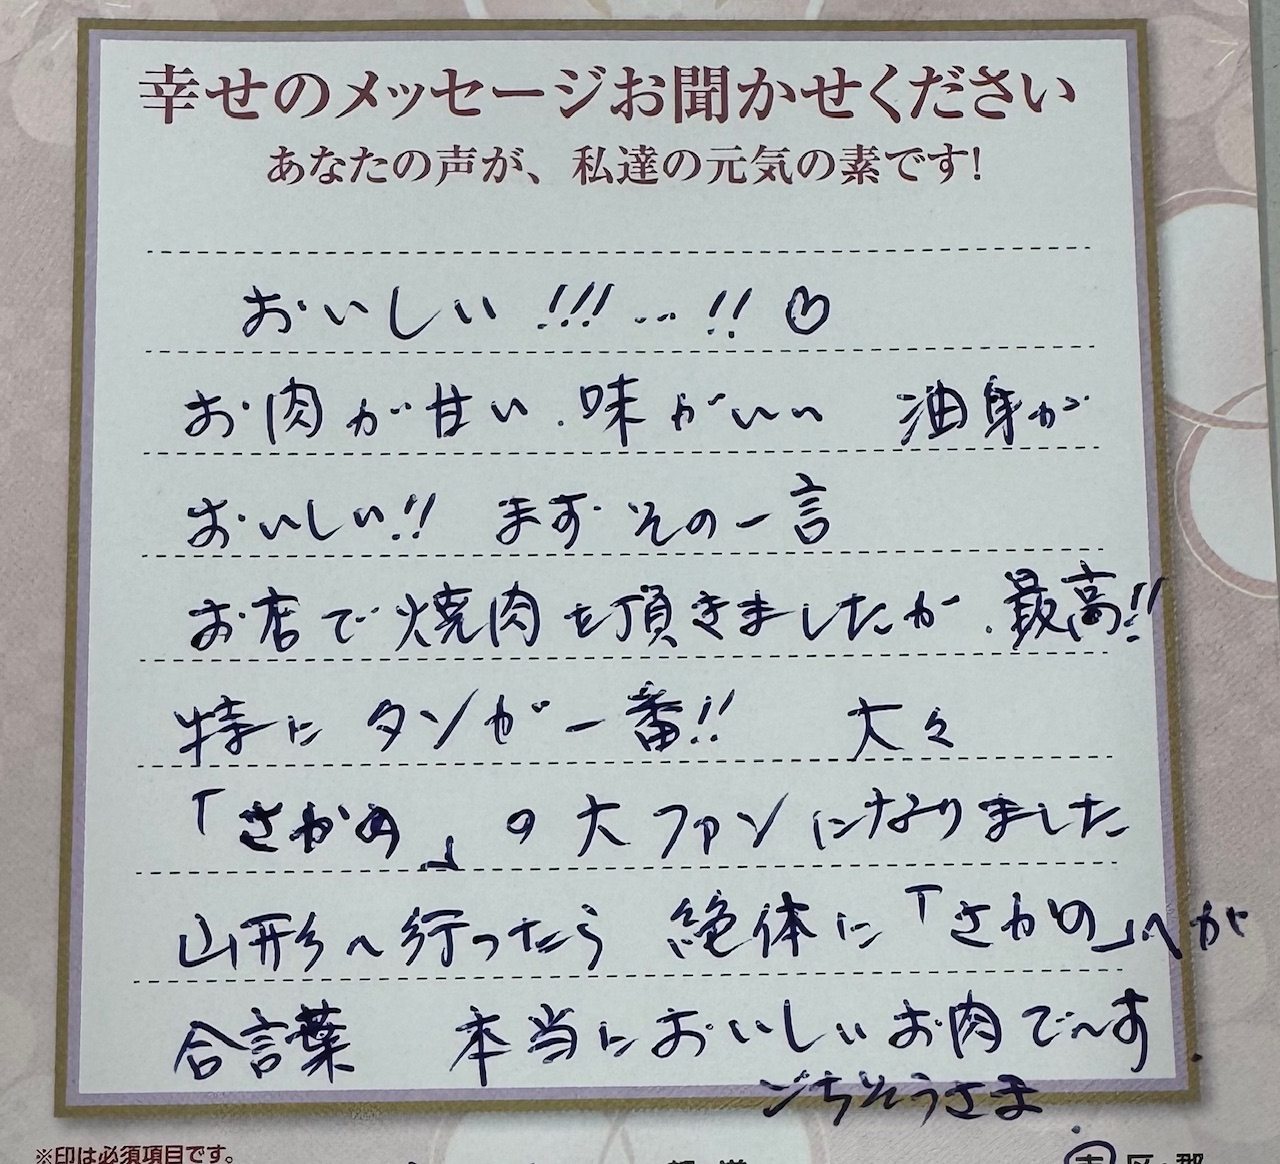 幸せのメッセージお聞かせください
あなたの声が、私達の元気の素です!
おいしい!!!…!!♡
お肉が甘い.味がいい 油身が
おいしい!! まずその一言
お店で焼肉を頂きましたが.最高!!
特にタンが一番!! 大々
「さかの」の大ファンになりました
山形へ行ったら 絶体に「さかの」へが
合言葉 本当においしいお肉で〜す.
ごちそうさま.
※印は必須項目です。
市 区 郡